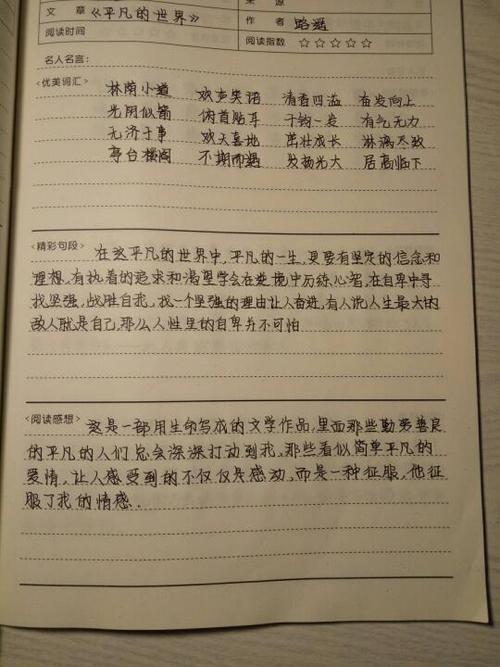 来 源
文 章 《平凡的世界》
作 者 路遥
阅读时间
阅读指数 ☆☆☆☆☆
名人名言:
<优美词汇> 林荫小道 欢声笑语 清香四溢 奋发向上
光阴似箭 俯首贴耳 千钧一发 有气无力
无济于事 欢天喜地 茁壮成长 淋漓尽致
亭台楼阁 不期而遇 发扬光大 居高临下
<精彩句段> 在这平凡的世界中,平凡的一生,更要有坚定的信念和
理想,有执着的追求和渴望学会在逆境中历练心智,在自卑中寻
找坚强,战胜自我,找一个坚强的理由让人奋进,有人说人生最大的
敌人就是自己,那么人性里的自卑并不可怕
<阅读感想> 这是一部用生命写成的文学作品,里面那些勤劳善良
的平凡的人们总会深深打动到我,那些看似简单平凡的
爱情,让人感受到的不仅仅是感动,而是一种征服,他征
服了我的情感.